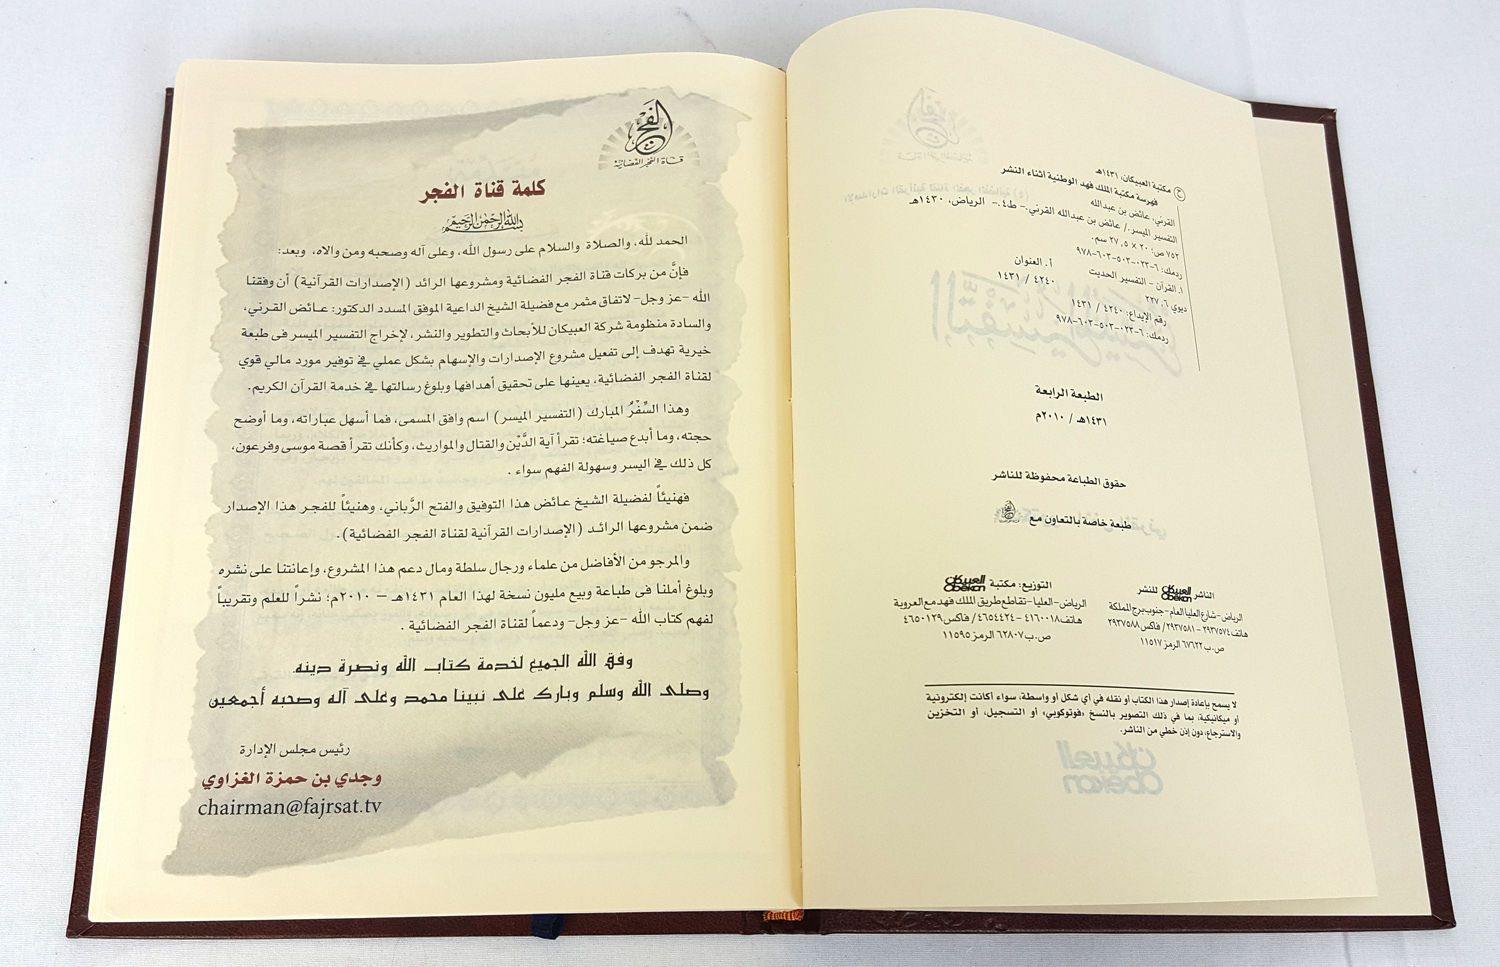 © مكتبة العبيكان، ١٤٣١هـ
فهرسة مكتبة الملك فهد الوطنية أثناء النشر
القرني، عائض بن عبدالله
التفسير الميسر./ عائض بن عبدالله القرني.- ط٤.- الرياض، ١٤٣٠هـ
٧٥٢ ص؛ ٢٠ × ٢٧,٥ سم.
ردمك: ٦-٠٢٣-٥٠٣-٦٠٣-٩٧٨
١. القرآن - التفسير الحديث أ. العنوان
ديوي ٢٢٧,٦ ٤٢٤٠ / ١٤٣١
رقم الإيداع: ٤٢٤٠ / ١٤٣١
ردمك: ٦-٠٢٣-٥٠٣-٦٠٣-٩٧٨
الطبعة الرابعة
١٤٣١هـ / ٢٠١٠م
حقوق الطباعة محفوظة للناشر
طبعة خاصة بالتعاون مع
الناشر العبيكان Obëkan للنشر
الرياض - شارع العليا العام - جنوب برج المملكة
هاتف ٢٩٣٧٥٧٤ - ٢٩٣٧٥٨١ / فاكس ٢٩٣٧٥٨٨
ص.ب ٦٧٦٢٢ الرمز ١١٥١٧
التوزيع: مكتبة العبيكان Obëkan
الرياض - العليا - تقاطع طريق الملك فهد مع العروبة
هاتف ٤١٦٠٠١٨ - ٤٦٥٤٤٢٤ / فاكس ٤٦٥٠١٢٩
ص.ب ٦٢٨٠٧ الرمز ١١٥٩٥
لا يسمح بإعادة إصدار هذا الكتاب أو نقله في أي شكل أو واسطة، سواء أكانت إلكترونية
أو ميكانيكية، بما في ذلك التصوير بالنسخ «فوتوكوبي» أو التسجيل، أو التخزين
والاسترجاع، دون إذن خطي من الناشر.
الفجر
قناة الفجر الفضائية
كلمة قناة الفجر
بسم الله الرحمن الرحيم
الحمد لله، والصلاة والسلام على رسول الله، وعلى آله وصحبه ومن والاه، وبعد:
فإنَّ من بركات قناة الفجر الفضائية ومشروعها الرائد (الإصدارات القرآنية) أن وفقنا
الله -عز وجل- لاتفاق مثمر مع فضيلة الشيخ الداعية الموفق المسدد الدكتور: عائض القرني،
والسادة منظومة شركة العبيكان للأبحاث والتطوير والنشر، لإخراج التفسير الميسر في طبعة
خيرية تهدف إلى تفعيل مشروع الإصدارات والإسهام بشكل عملي في توفير مورد مالي قوي
لقناة الفجر الفضائية، يعينها على تحقيق أهدافها وبلوغ رسالتها في خدمة القرآن الكريم.
وهذا السِّفْرُ المبارك (التفسير الميسر) اسم وافق المسمى، فما أسهل عباراته، وما أوضح
حجته، وما أبدع صياغته؛ تقرأ آية الدَّيْن والقتال والمواريث، وكأنك تقرأ قصة موسى وفرعون،
كل ذلك في اليسر وسهولة الفهم سواء .
فهنيئاً لفضيلة الشيخ عائض هذا التوفيق والفتح الرَّباني، وهنيئاً للفجر هذا الإصدار
ضمن مشروعها الرائد (الإصدارات القرآنية لقناة الفجر الفضائية).
والمرجو من الأفاضل من علماء ورجال سلطة ومال دعم هذا المشروع، وإعانتنا على نشره
وبلوغ أملنا في طباعة وبيع مليون نسخة لهذا العام ١٤٣١هـ – ٢٠١٠م؛ نشراً للعلم وتقريباً
لفهم كتاب الله -عز وجل- ودعماً لقناة الفجر الفضائية .
وفق الله الجميع لخدمة كتاب الله ونصرة دينه.
وصلى الله وسلم وبارك على نبينا محمد وعلى آله وصحبه أجمعين
رئيس مجلس الإدارة
وجدي بن حمزة الغزاوي
chairman@fajrsat.tv